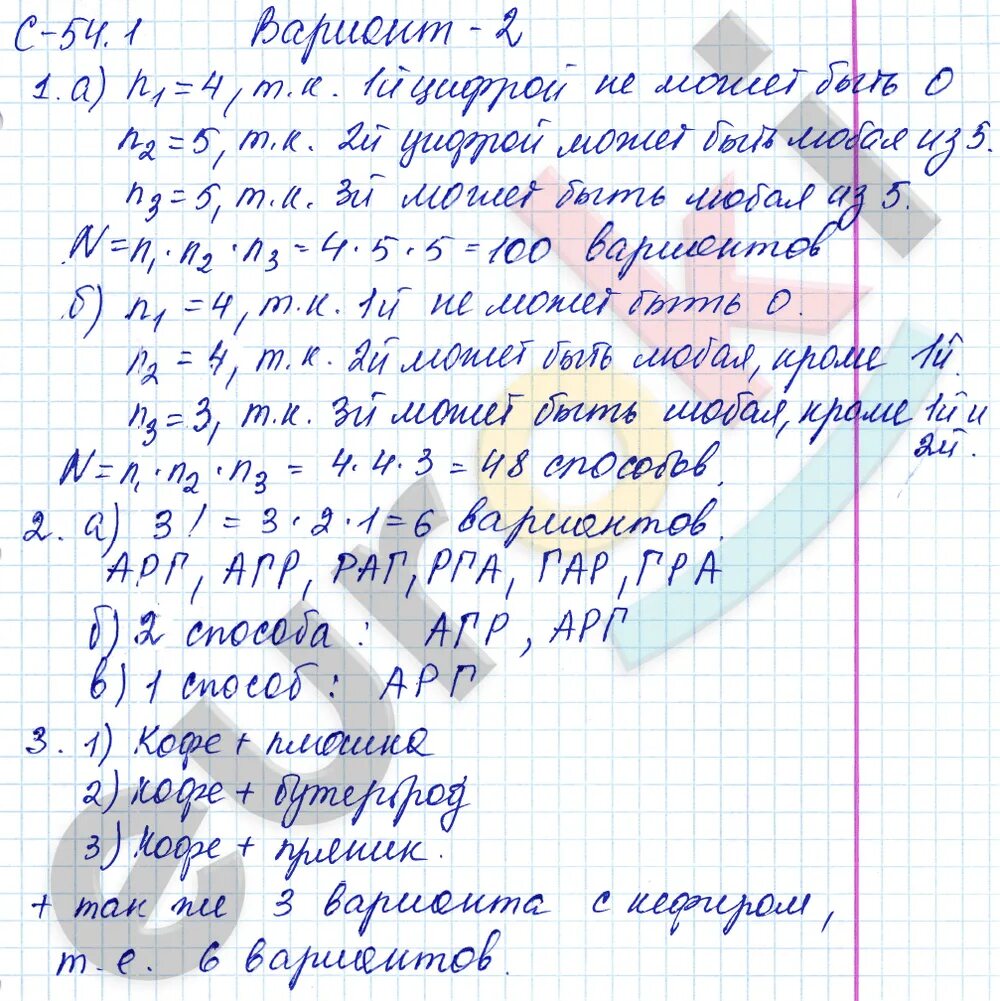 С-54.1 Вариант-2
1. а) n₁=4, т.к. 1й цифрой не может быть 0
n₂=5, т.к. 2й цифрой может быть любая из 5.
n₃=5, т.к. 3й может быть любая из 5.
N=n₁·n₂·n₃=4·5·5=100 вариантов
б) n₁=4, т.к. 1й не может быть 0.
n₂=4, т.к. 2й может быть любая, кроме 1й.
n₃=3, т.к. 3й может быть любая, кроме 1й и
2й.
N=n₁·n₂·n₃=4·4·3=48 способов.
2. а) 3!=3·2·1=6 вариантов.
АРГ, АГР, РАГ, РГА, ГАР, ГРА
б) 2 способа: АГР, АРГ
в) 1 способ: АРГ
3. 1) Кофе + плюшка
2) Кофе + бутерброд
3) Кофе + пряник.
+ так же 3 варианта с кефиром,
т.е. 6 вариантов.
euroki